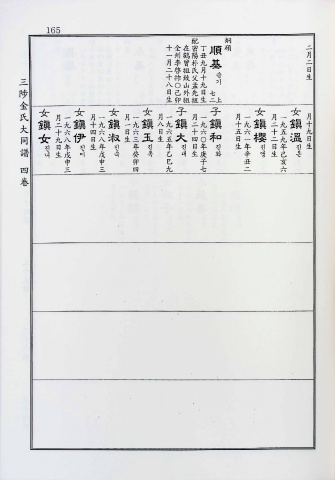 165
三陟金氏大同譜 四卷
二月二日生
炯碩
順基 순기 七二上
丁丑九月十九日生
配密陽朴氏父孟先祖
在鶴曾祖致山外祖
全州李啓抃〇己卯
十一月二十八日生
月十九日生
女鎭溫 진온
一九五九年己亥六
月二十二日生
女鎭櫻 진앵
一九六一年辛丑二
月十五日生
子鎭和 진화
一九六〇年庚子七
月二十四日生
子鎭大 진대
一九六五年乙巳九
月八日生
女鎭玉 진옥
一九六三年癸卯四
月一日生
女鎭淑 진숙
一九六八年戊申三
月十四日生
女鎭伊 진이
一九六八年戊申三
月二十九日生
女鎭女 진녀